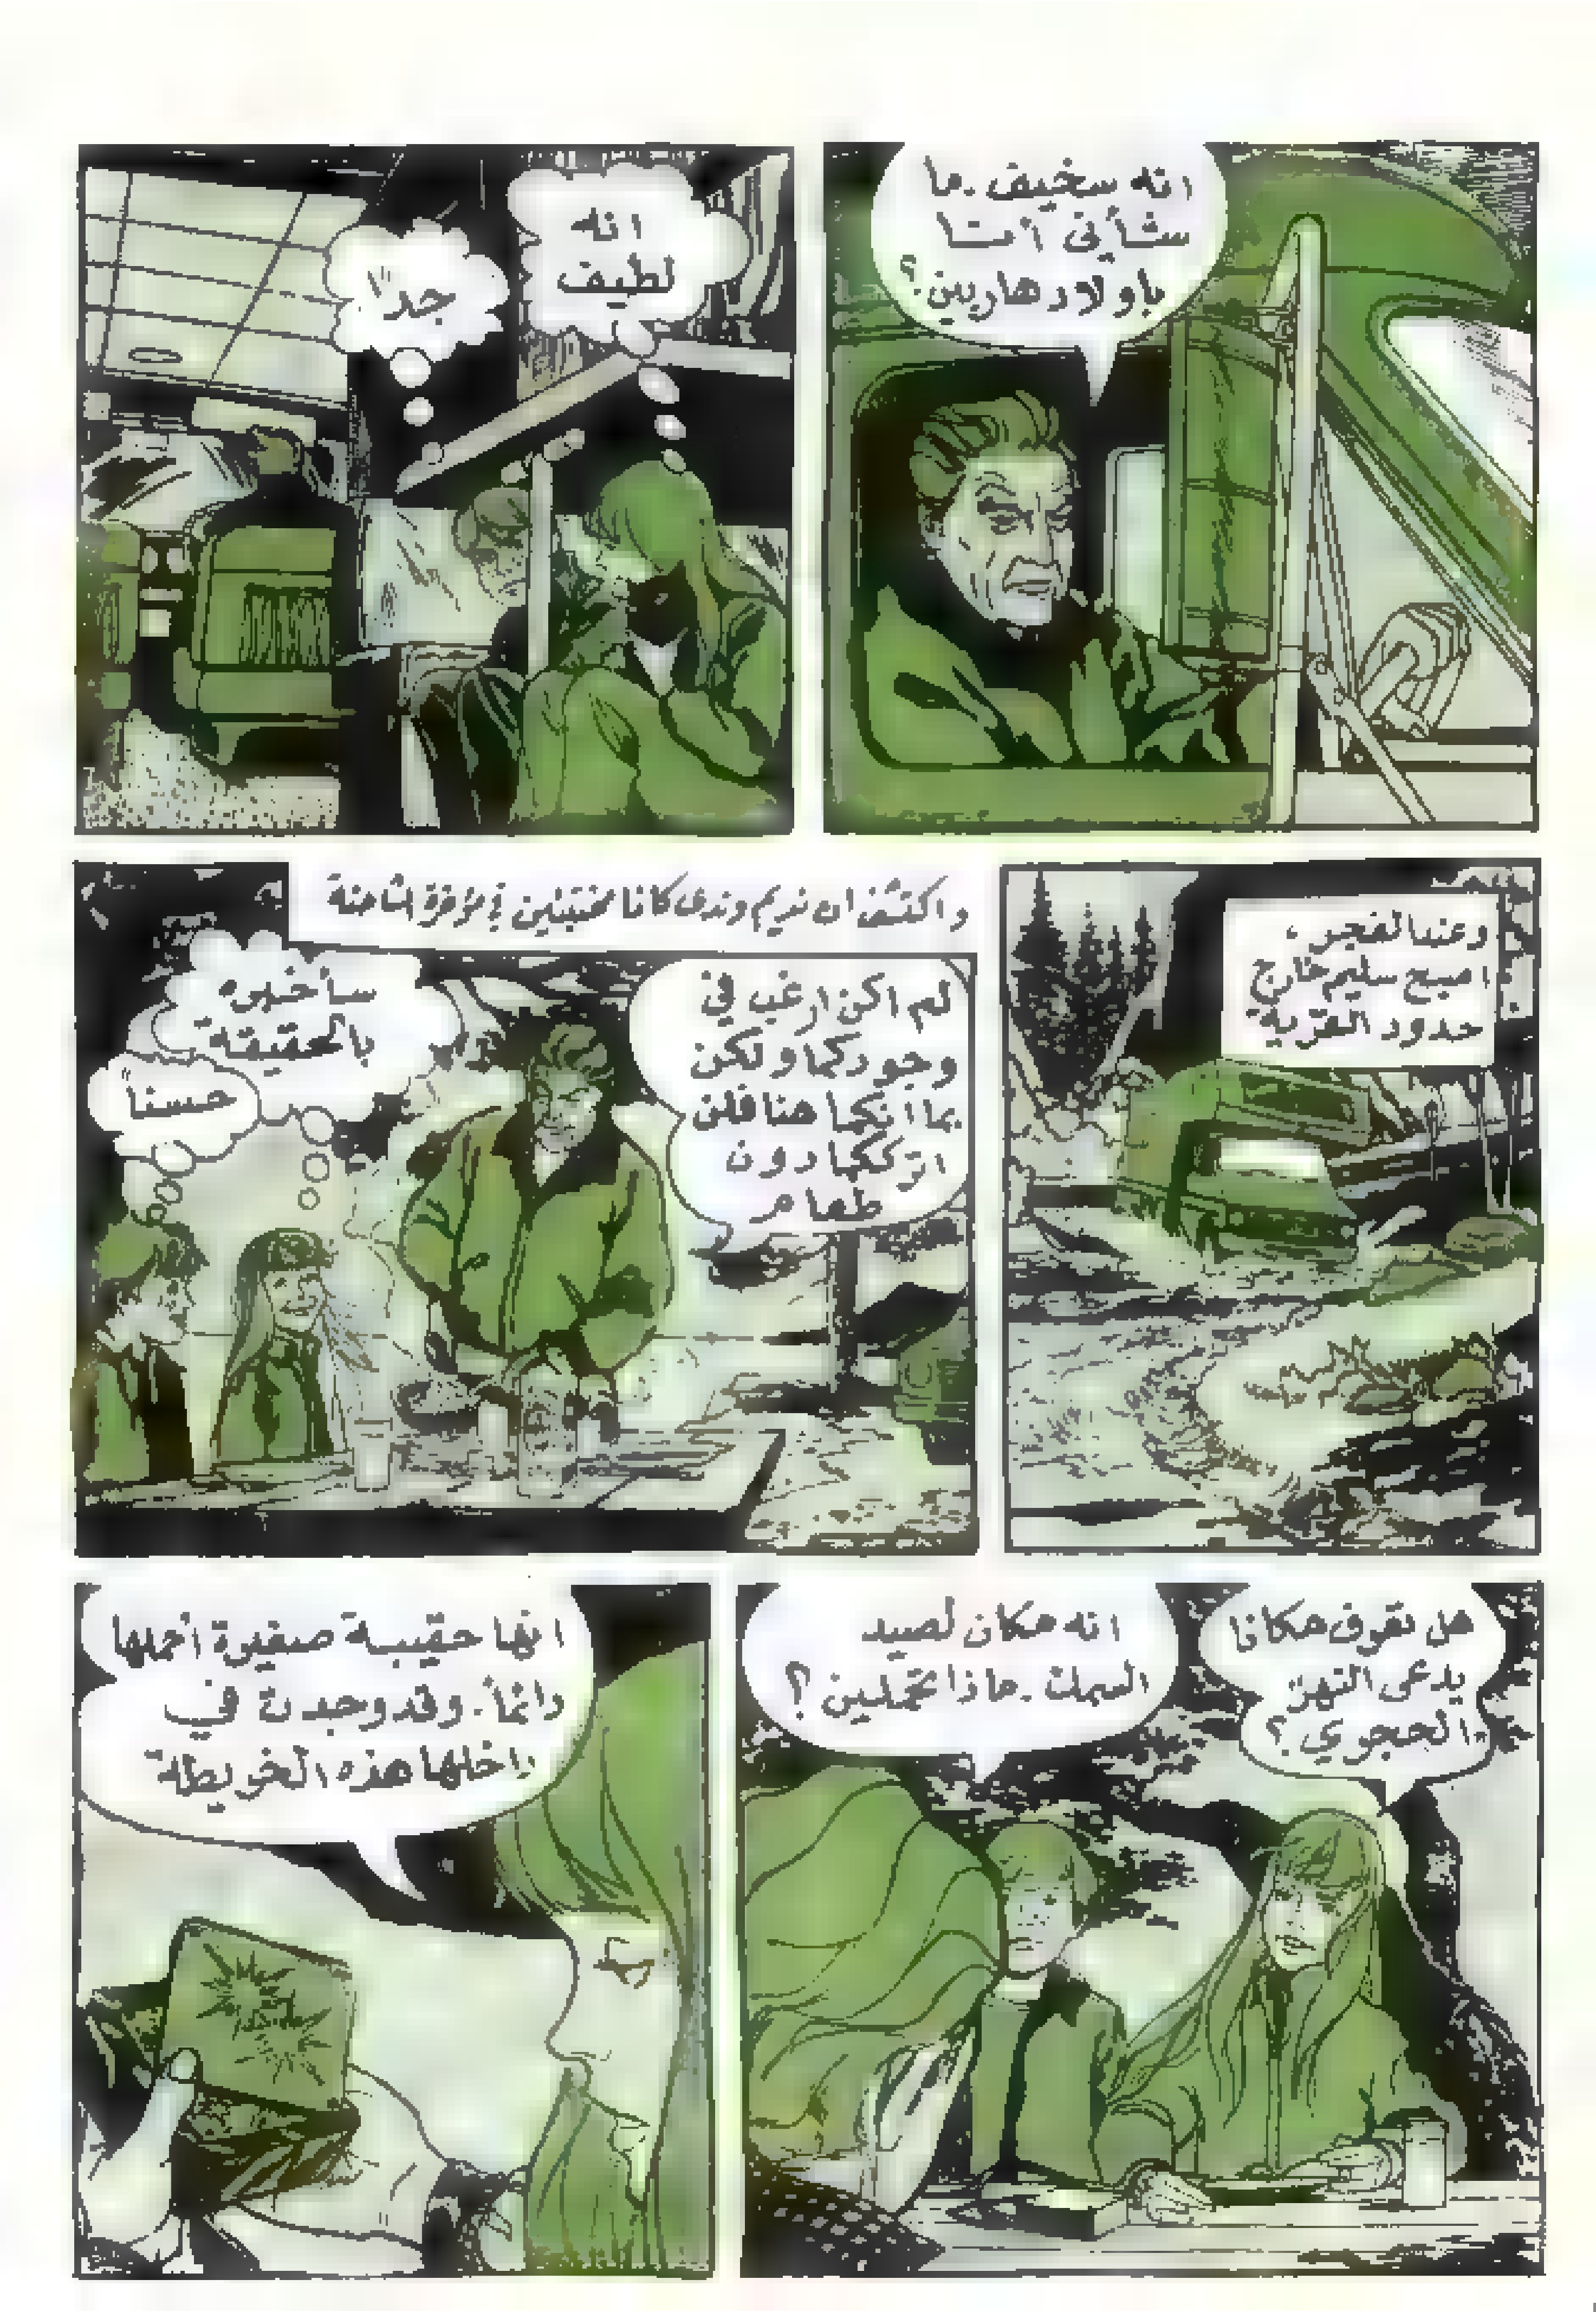 انه سخيف. ما
شأني أنا
باولاد هاربين؟
انه
لطيف
جداً
وعند الفجر،
اصبح سليم خارج
حدود القرية
واكتشف ان نديم وندى كانا مختبئين في مؤخرة الشاحنة
لم اكن ارغب في
وجودكما ولكن
بما انكما هنا فلن
اترككما دون
طعام
سأخبره
بالحقيقة
حسناً
هل تعرف مكانا
يدعى النهر
الحجري؟
انه مكان لصيد
السمك. ماذا تحملين؟
انها حقيبة صغيرة أحملها
دائماً. وقد وجدت في
داخلها هذه الخريطة